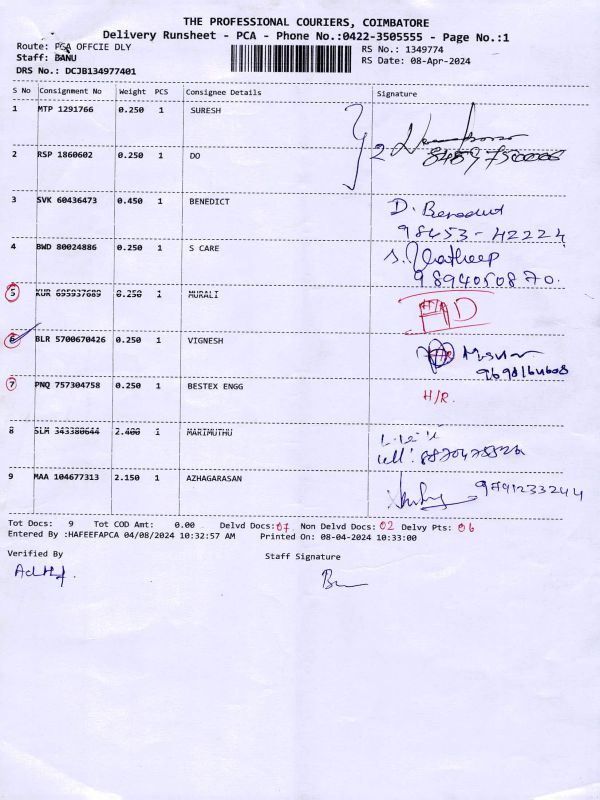 THE PROFESSIONAL COURIERS, COIMBATORE
Delivery Runsheet - PCA - Phone No.:0422-3505555 - Page No.:1
Route: PCA OFFCIE DLY
RS No.: 1349774
Staff: BANU
RS Date: 08-Apr-2024
DRS No.: DCJB134977401
S No Consignment No Weight PCS Consignee Details Signature
1 MTP 1291766 0.250 1 SURESH
2 RSP 1860602 0.250 1 DO 2
3 SVK 60436473 0.450 1 BENEDICT D. Benedict
98453-42224
4 BWD 80024886 0.250 1 S CARE
9894050870.
5 KUR 695937689 0.250 1 MURALI AD
6 BLR 5700670426 0.250 1 VIGNESH
7 PNQ 757304758 0.250 1 BESTEX ENGG H/R.
8 SLM 343380644 2.400 1 MARIMUTHU
9 MAA 104677313 2.150 1 AZHAGARASAN 9791233244
Tot Docs: 9 Tot COD Amt: 0.00 Delvd Docs: 07 Non Delvd Docs: 02 Delvy Pts: 06
Entered By :HAFEEFAPCA 04/08/2024 10:32:57 AM Printed On: 08-04-2024 10:33:00
Verified By Staff Signature